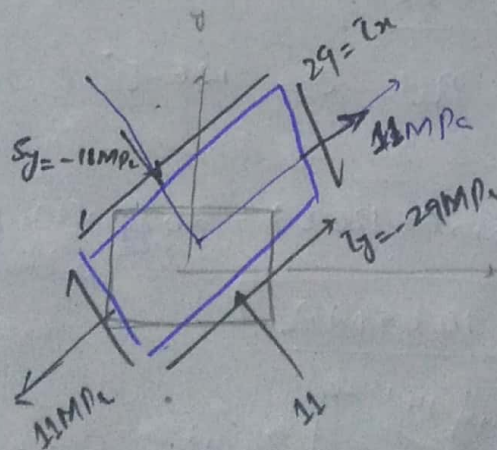 29 = τx
Sy = -11MPa
11MPa
τy = -29MPa
11MPa
11